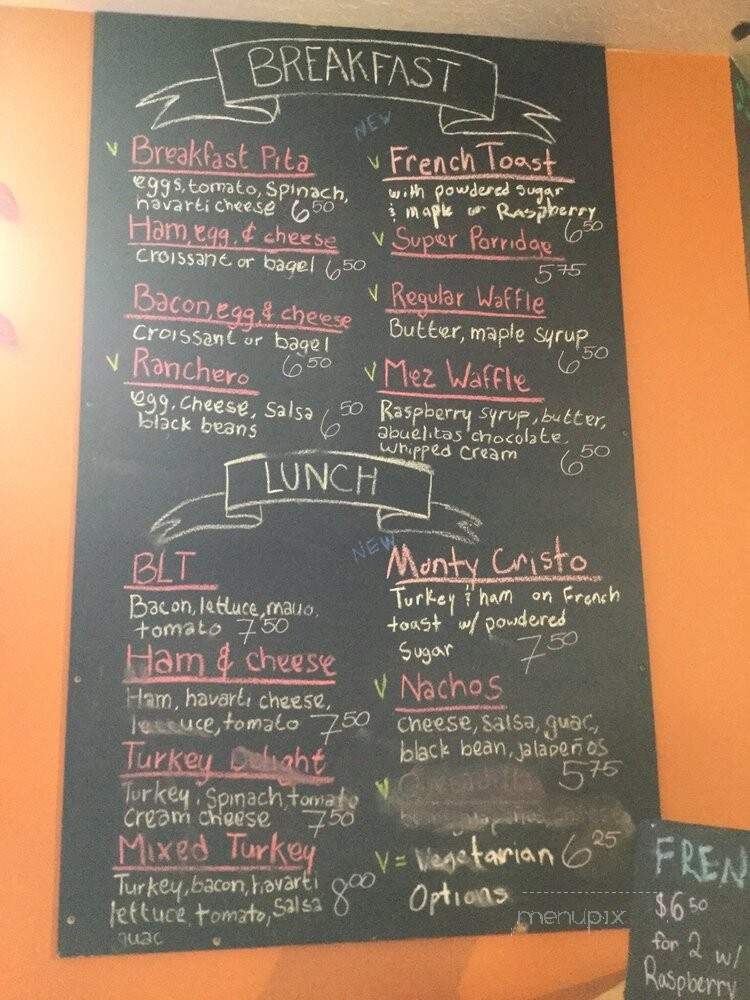 BREAKFAST
V Breakfast Pita
eggs, tomato, Spinach,
havarti cheese 6 50
Ham, egg, & cheese
Croissant or bagel 6 50
Bacon, egg, & cheese
Croissant or bagel
6 50
V Ranchero
egg, cheese, Salsa
black beans 6 50
NEW
V French Toast
with powdered sugar
& maple or Raspberry
6 50
V Super Porridge
5 75
V Regular Waffle
Butter, maple syrup
6 50
V Mez Waffle
Raspberry syrup, butter,
abuelitas chocolate
whipped cream
6 50
LUNCH
BLT
Bacon, lettuce, mayo,
tomato 7 50
Ham & cheese
Ham, havarti cheese,
lettuce, tomato 7 50
Turkey Delight
Turkey, Spinach, tomato
cream cheese 7 50
Mixed Turkey
Turkey, bacon, havarti
lettuce, tomato, Salsa
guac
8 00
NEW
Monty Cristo
Turkey & ham on French
toast w/ powdered
Sugar 7 50
V Nachos
cheese, salsa, guac,
black bean, jalapeños
5 75
V
6 25
V = Vegetarian
Options
menupix
FREN
$6 50
for 2 w/
Raspberry